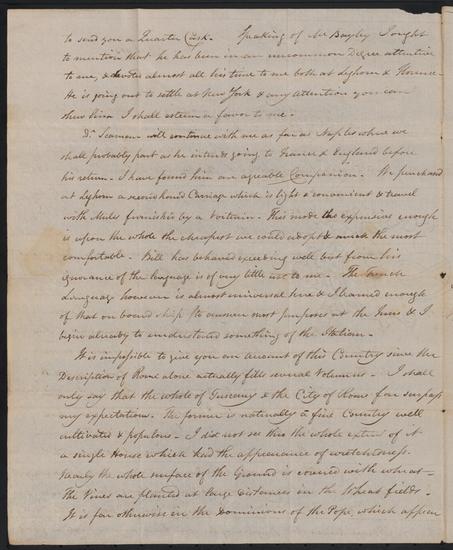 to send you a Quarter Cask. Speaking of Mr Bayley I ought
to mention that he has been in an uncommon Degree attentive
to me, & devotes almost all his time to me both at Leghorn & Florence.
He is going out to settle at New York & any attention you can
shew him I shall esteem a favor to me.
Dr Seaman will continue with me as far as Naples where we
shall probably part as he intends going to France & England before
his return. I have found him an agreable Companion. We purchased
at Leghorn a second hand Carriage which is light & convenient & travel
with Mules furnish'd by a Voiturin. This mode tho expensive enough
is upon the whole the cheapest we could adopt & much the most
comfortable. Bill has behaved exceeding well but from his
ignorance of the language is of very little use to me. The french
Language however is almost universal here & I learned enough
of that on board ship to answer most purposes at the Inns & I
begin already to understand something of the Italian.
It is impossible to give you an account of this Country since the
Description of Rome alone actually fills several Volumes. I shall
only say that the whole of Tuscany & the City of Rome far surpass
my expectations. The former is naturally a fine Country well
cultivated & populous. I did not see thro the whole extent of it
a single House which had the appearance of wretchedness.
Nearly the whole surface of the Ground is covered with wheat
the Vines are planted at large distances in the Wheat fields.
It is far otherwise in the Dominions of the Pope, which appear